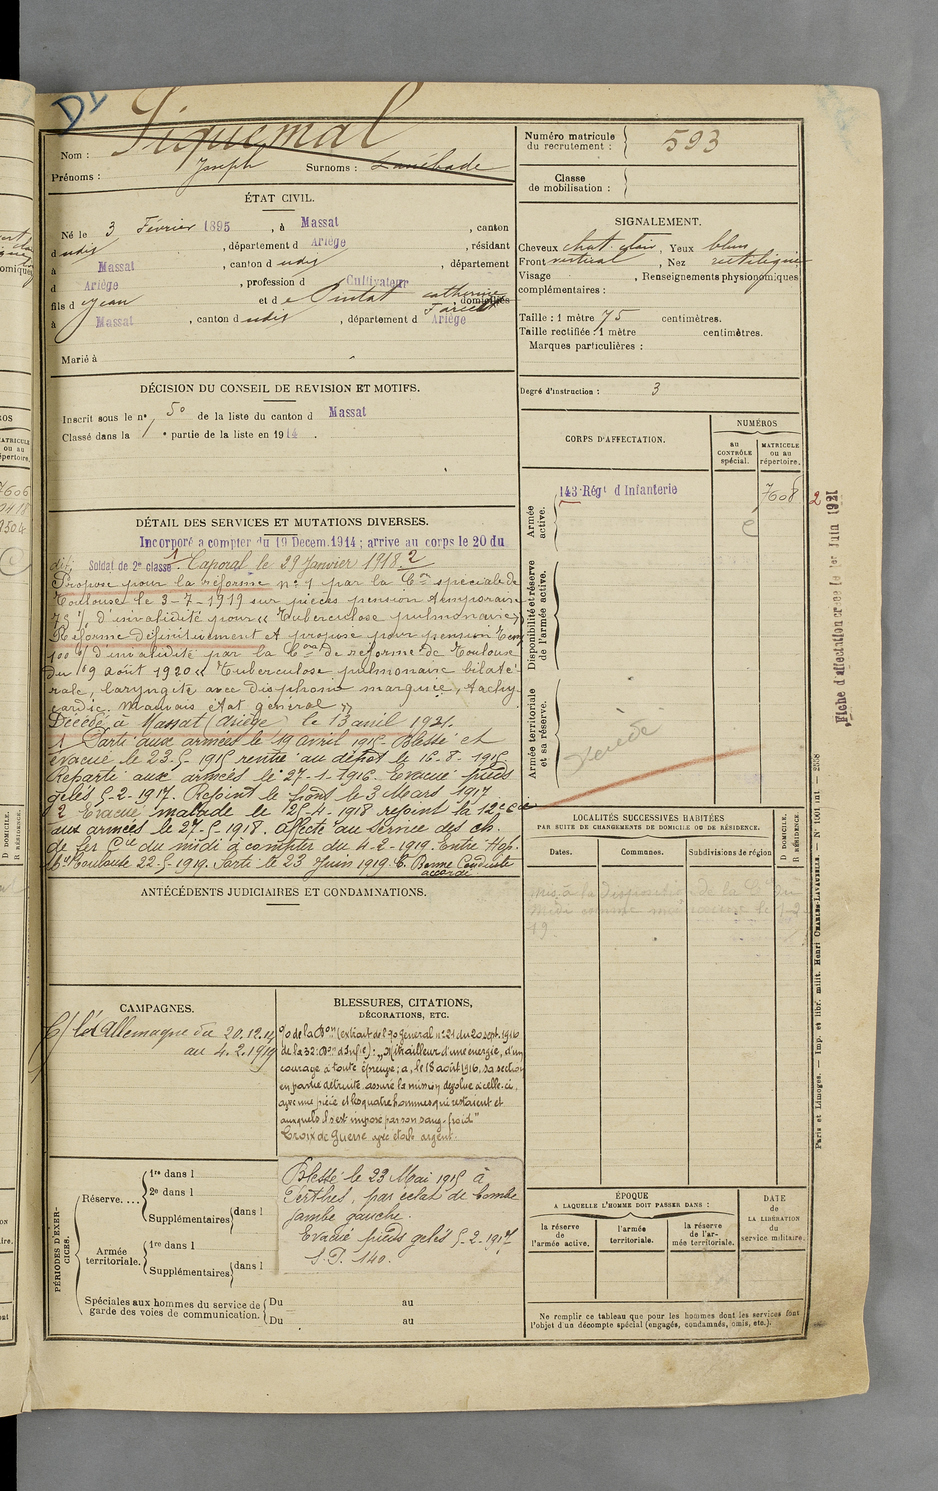 Piquemal
Nom :
Prénoms : Joseph Surnoms : Lanébade
Numéro matricule
du recrutement : 593
Classe
de mobilisation :
ÉTAT CIVIL.
Né le 3 Février 1895, à Massat, canton
d udit, département d Ariège, résidant
à Massat, canton d udit, département
d Ariège, profession d Cultivateur
fils d e Jean et d e Pintat Catherine domiciliés
Farcet
à Massat, canton d udit, département d Ariège
Marié à
SIGNALEMENT.
Cheveux chat. clair, Yeux bleus
Front vertical, Nez rectiligne
Visage , Renseignements physionomiques
complémentaires :
Taille : 1 mètre 75 centimètres.
Taille rectifiée : 1 mètre centimètres.
Marques particulières :
Degré d'instruction : 3
DÉCISION DU CONSEIL DE REVISION ET MOTIFS.
Inscrit sous le n° 50 de la liste du canton d Massat
Classé dans la 1 e partie de la liste en 1914.
DÉTAIL DES SERVICES ET MUTATIONS DIVERSES.
Incorporé a compter du 19 Decem. 1914 ; arrive au corps le 20 du
dit; Soldat de 2e classe 1. Caporal le 29 Janvier 1918 2
Proposé pour la réforme n° 1 par la Con spéciale de
Toulouse le 3-7-1919 sur pièces pension temporaire
75 % d'invalidité pour « Tuberculose pulmonaire »
Réformé définitivement et proposé pour pension Temp
100 % d'invalidité par la Con de réforme de Toulouse
du 19 août 1920 « Tuberculose pulmonaire bilaté
rale, laryngite avec disphonie marquée, tachy
cardie. Mauvais état général »
Décédé à Massat (Ariège) le 13 avril 1921.
1 Parti aux armées le 19 avril 1915. Blessé et
évacué le 23-5-1915 rentré au dépôt le 16-8-1915
Reparti aux armées le 27-1-1916. Evacué pieds
gelés 5-2-1917. Rejoint le front le 3 Mars 1917
2 Evacué malade le 25-4-1918 rejoint la 12e Cie
aux armées le 27-5-1918. affecté au Service des ch.
de fer Cie du midi à compter du 4-2-1919. Entre Hop.
Toulouse 22-5-1919. Sorti le 23 Juin 1919. C. Bonne Conduite
accordé
ANTÉCÉDENTS JUDICIAIRES ET CONDAMNATIONS.
CORPS D'AFFECTATION.
NUMÉROS
au
CONTRÔLE
spécial.
MATRICULE
ou au
répertoire.
Armée
active.
143 Régt d Infanterie 7608
Disponibilité et réserve
de l'armée active.
Armée territoriale
et sa réserve.
Décédé
LOCALITÉS SUCCESSIVES HABITÉES
PAR SUITE DE CHANGEMENTS DE DOMICILE OU DE RÉSIDENCE.
Dates. Communes. Subdivisions de région
D DOMICILE.
R RÉSIDENCE
Mis à la disposition de la Cie du
Midi
19
CAMPAGNES.
C/ l'Allemagne du 20.12.14
au 4.2.1919
BLESSURES, CITATIONS,
DÉCORATIONS, ETC.
O/ de la Don (extrait de l'O général n° 21 du 20 sept. 1916
de la 32e Don d'Infie) : "Mitrailleur d'une énergie, d'un
courage à toute épreuve ; a, le 18 août 1916, sa section
en partie détruite assuré la mission dévolue à celle-ci
avec une pièce et les quatre hommes qui restaient et
auxquels il s'est imposé par son sang-froid"
Croix de guerre avec étoile argent.
Blessé le 23 Mai 1915 à
Perthes, par éclat de bombe
jambe gauche.
Evacué pieds gelés 5-2-1917
S.P. 140.
PÉRIODES D'EXER-
CICES.
Réserve....
1re dans l
2e dans l
Supplémentaires dans l
Armée
territoriale.
1re dans l
Supplémentaires dans l
Spéciales aux hommes du service de
garde des voies de communication.
Du au
Du au
ÉPOQUE
A LAQUELLE L'HOMME DOIT PASSER DANS :
la réserve
de
l'armée active.
l'armée
territoriale.
la réserve
de l'ar-
mée territoriale.
DATE
de
LA LIBÉRATION
du
service militaire.
Ne remplir ce tableau que pour les hommes dont les services font
l'objet d'un décompte spécial (engagés, condamnés, omis, etc.).
Fiche d'affectation créée le 1er Juin 1921
Paris et Limoges. — Imp. et libr. milit. Henri CHARLES-LAVAUZELLE. — N° 1001 int. — 2558